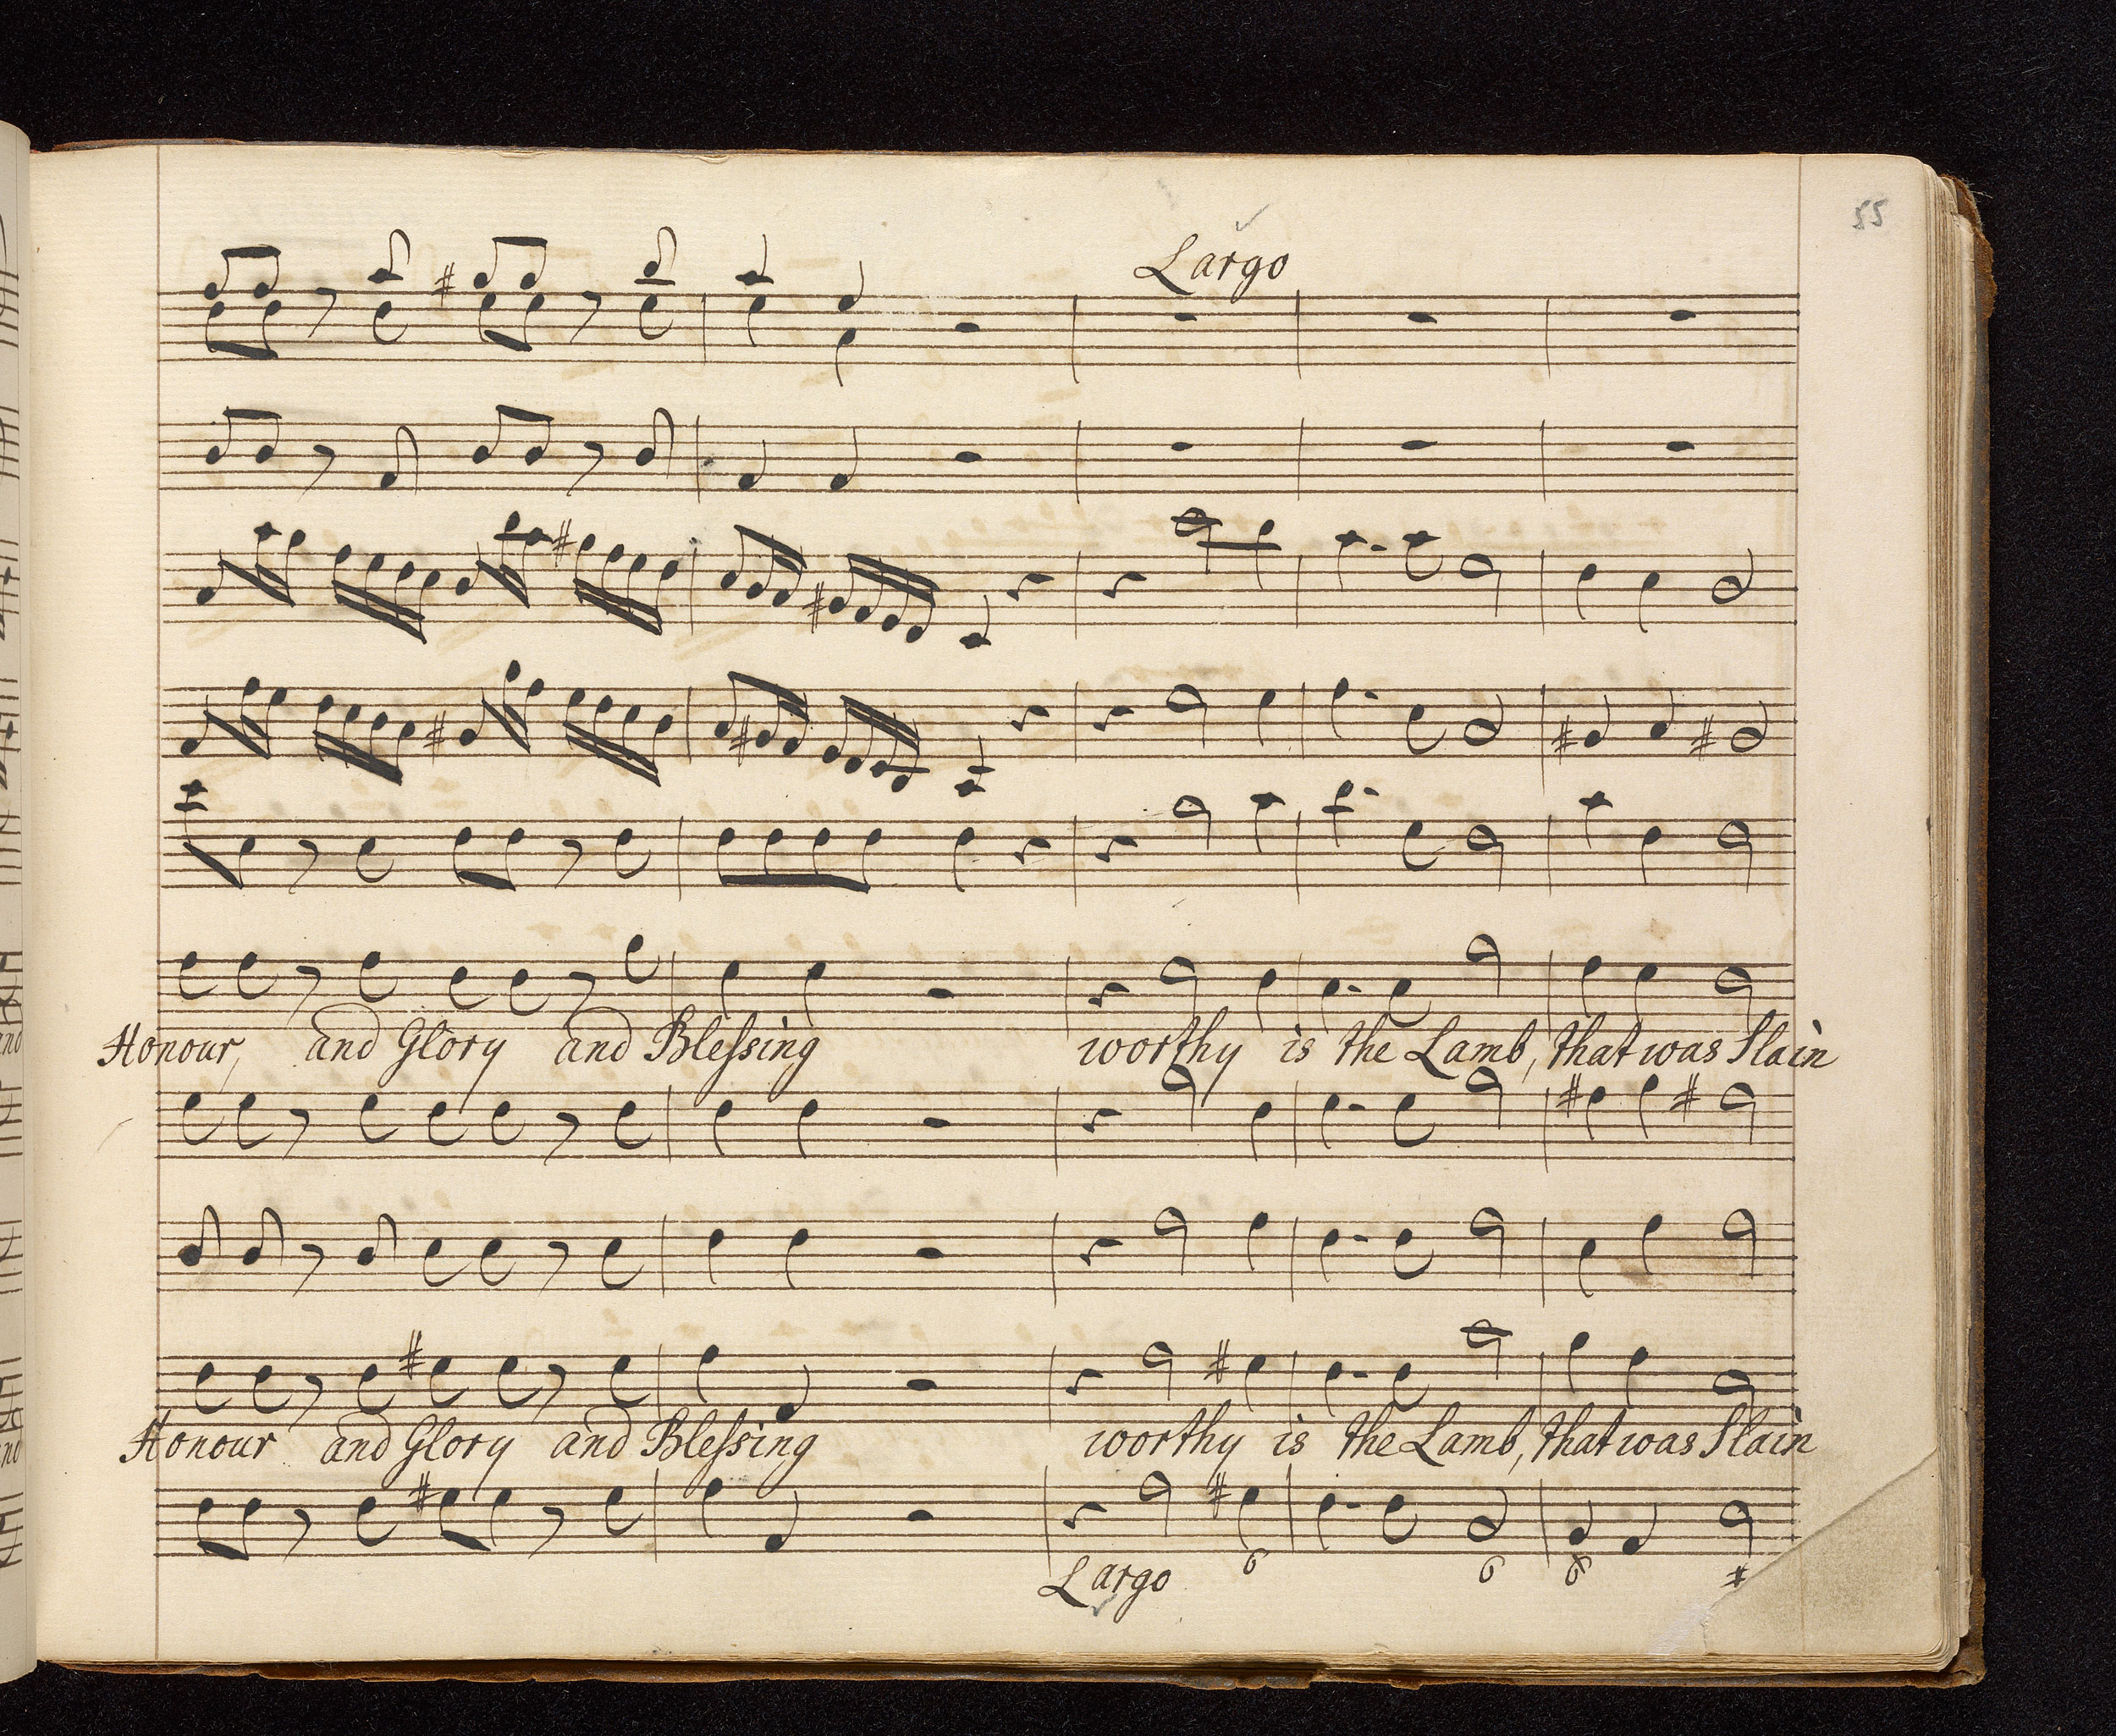 55
Largo
Honour, and Glory and Bleſsing worthy is the Lamb, that was Slain
Honour and Glory and Bleſsing worthy is the Lamb, that was Slain
6 6 6 #
Largo